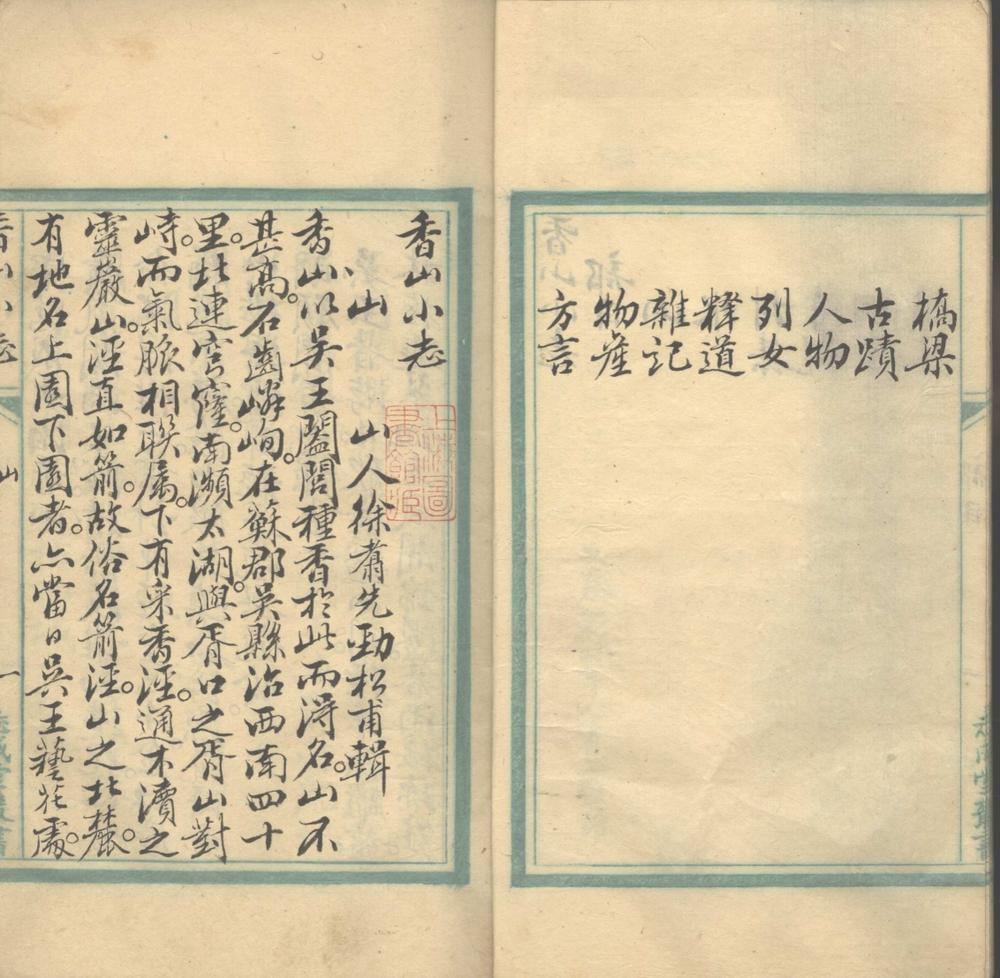 橋梁
古蹟
人物
列女
釋道
雜記
物產
方言
香山小志
山　山人徐翥先勁松甫輯
香山以吳王闔閭種香於此而得名。山不
甚高。石齒嶙峋。在蘇郡吳縣治西南四十
里。北連穹窿。南瀕太湖。與胥口之胥山對
峙。而氣脈相聯属。下有采香涇。通木瀆之
靈巖山。涇直如箭。故俗名箭涇。山之北麓。
有地名上園下園者。亦當日吳王藝花處。
香山小志　山　一
上海圖
書館藏